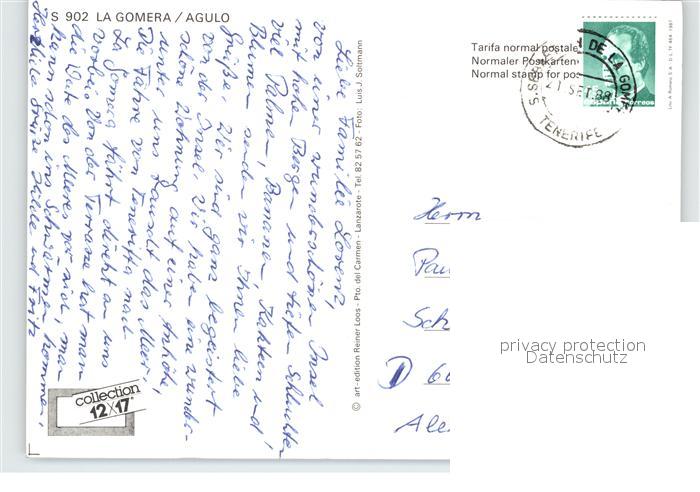 S 902 LA GOMERA / AGULO
Liebe Familie Lorenz,
von einer wunderschönen Insel
mit hohen Bergen und tiefen Schluchten
viel Palmen, Bananen, Kakteen und
Blumen senden wir Ihnen liebe
Grüße. Wir sind ganz begeistert
von der Insel. Wir haben eine wunder-
schöne Wohnung auf einer Anhöhe,
unter uns rauscht das Meer.
Die Fähre von Teneriffa nach
La Gomera fährt direkt an uns
vorbei. Von der Terrasse hat man
die Weite des Meeres vor sich, man
kann schon ins Schwärmen kommen.
Herzliche Grüße und Fritz
© art-edition Reiner Loos - Pto. del Carmen - Lanzarote - Tel. 82 57 62 - Foto: Luis J. Soltmann
collection
12x17
Tarifa normal postale
Normaler Postkarten
Normal stamp for po
S. SEB DE LA GOMERA
21 SET. 88
TENERIFE
correos
Herrn
Pau
Sch
D 60
Alz
privacy protection
Datenschutz